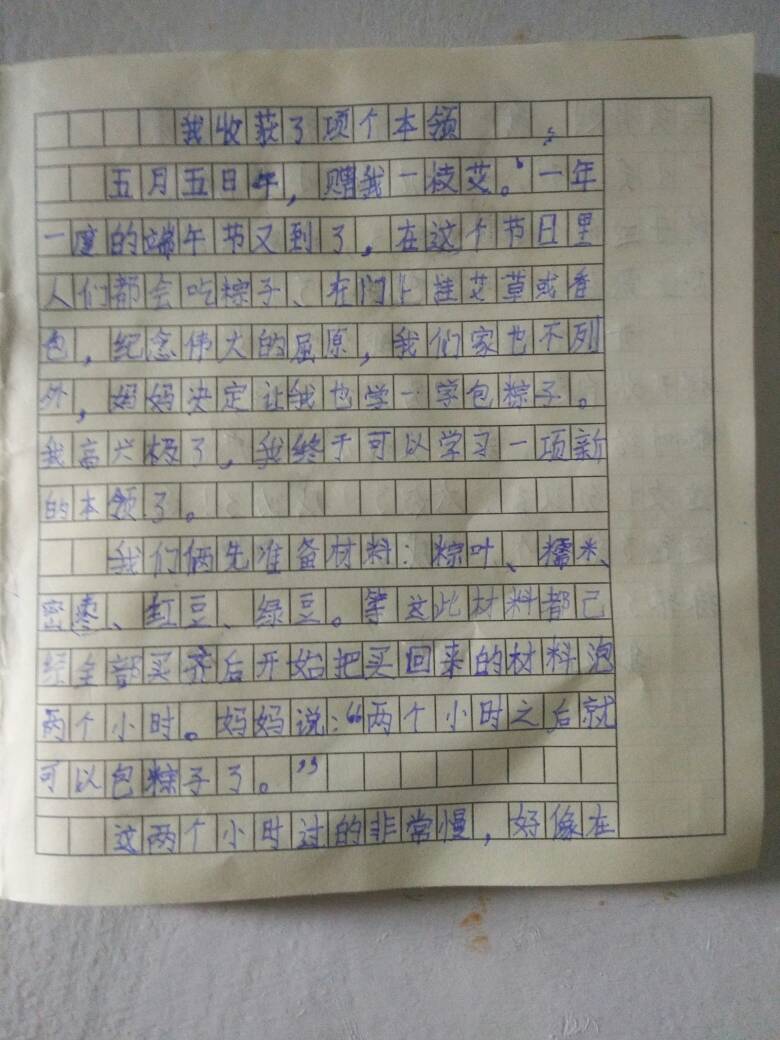 我收获了项个本领
五月五日午，赠我一枝艾。一年
一度的端午节又到了，在这个节日里
人们都会吃粽子、在门上挂艾草或香
包，纪念伟大的屈原，我们家也不列
外，妈妈决定让我也学一学包粽子。
我高兴极了，我终于可以学习一项新
的本领了。
我们俩先准备材料：粽叶、糯米、
密枣、红豆、绿豆。等这此材料都已
经全部买齐后开始把买回来的材料泡
两个小时。妈妈说：“两个小时之后就
可以包粽子了。”
这两个小时过的非常慢，好像在